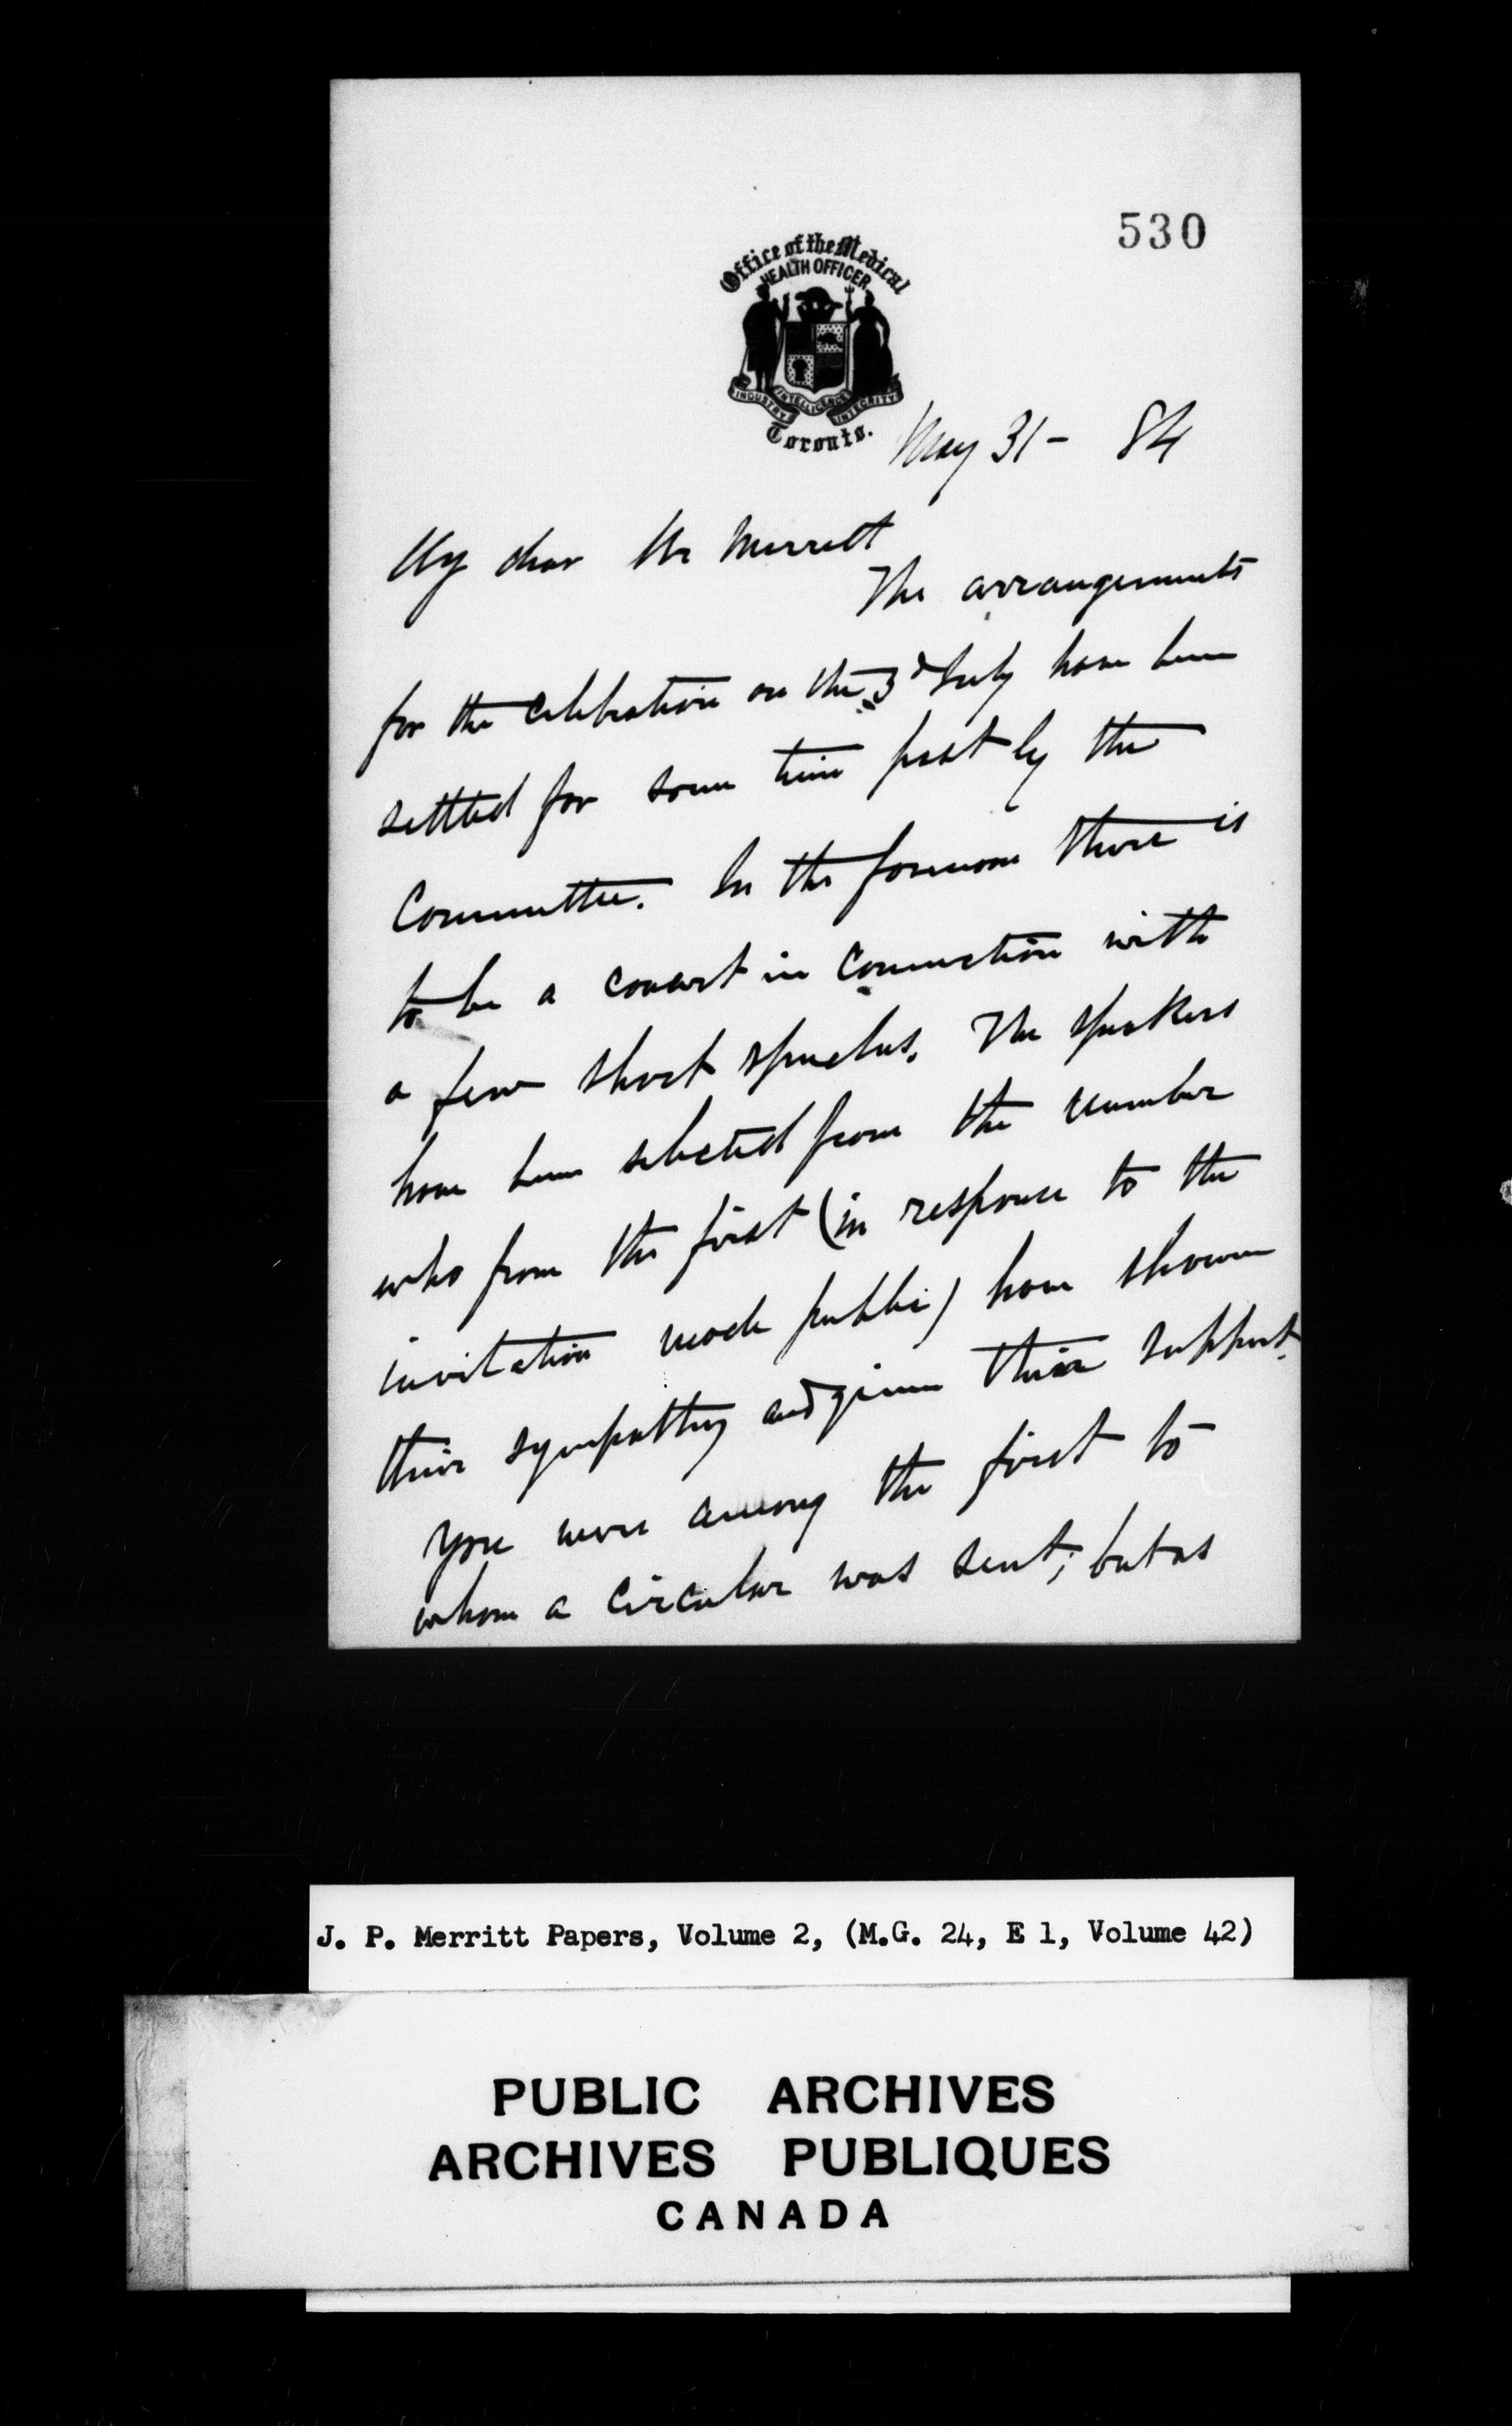 530
Office of the Medical
HEALTH OFFICER
INDUSTRY INTELLIGENCE INTEGRITY
Toronto.
May 31 - 84
My dear Mr Merritt
The arrangements
for the celebration on the 3d July have been
settled for some time past by the
Committee. In the forenoon there is
to be a concert in connection with
a few short speeches. The speakers
have been selected from the number
who from the first (in response to the
invitation made public) have shown
their sympathy and given their support.
You were among the first to
whom a circular was sent; but as
J. P. Merritt Papers, Volume 2, (M.G. 24, E 1, Volume 42)
PUBLIC ARCHIVES
ARCHIVES PUBLIQUES
CANADA